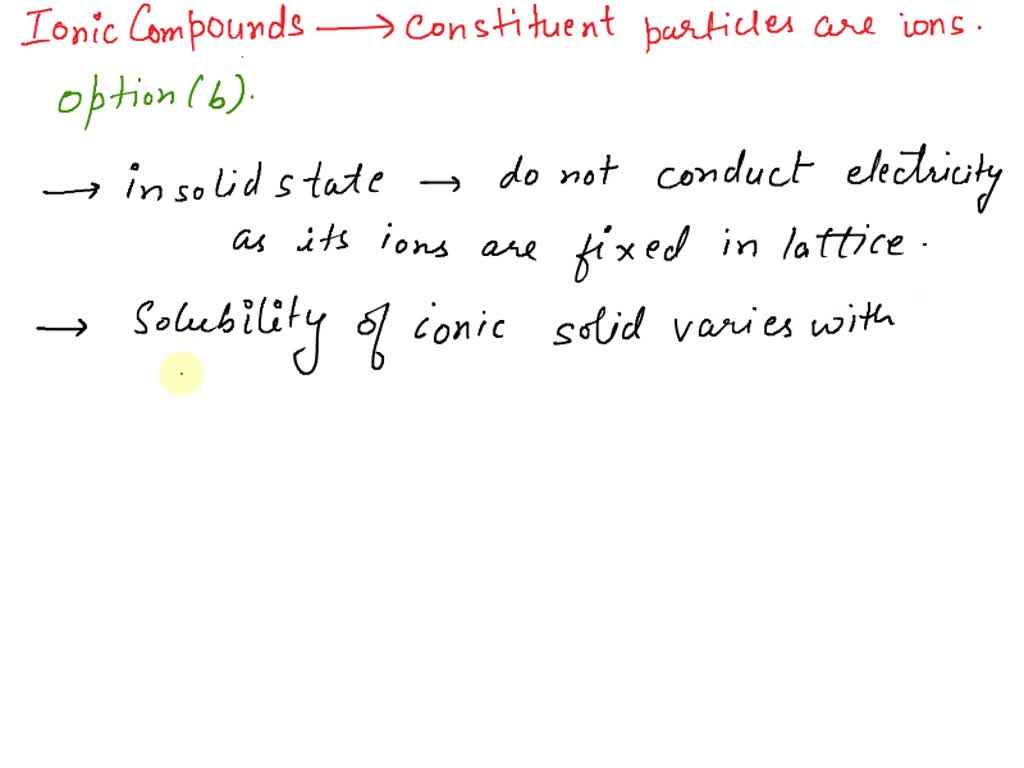 Ionic Compounds → constituent particles are ions.
option (b).
→ in solid state → do not conduct electricity
as its ions are fixed in lattice.
→ Solubility of ionic solid varies with